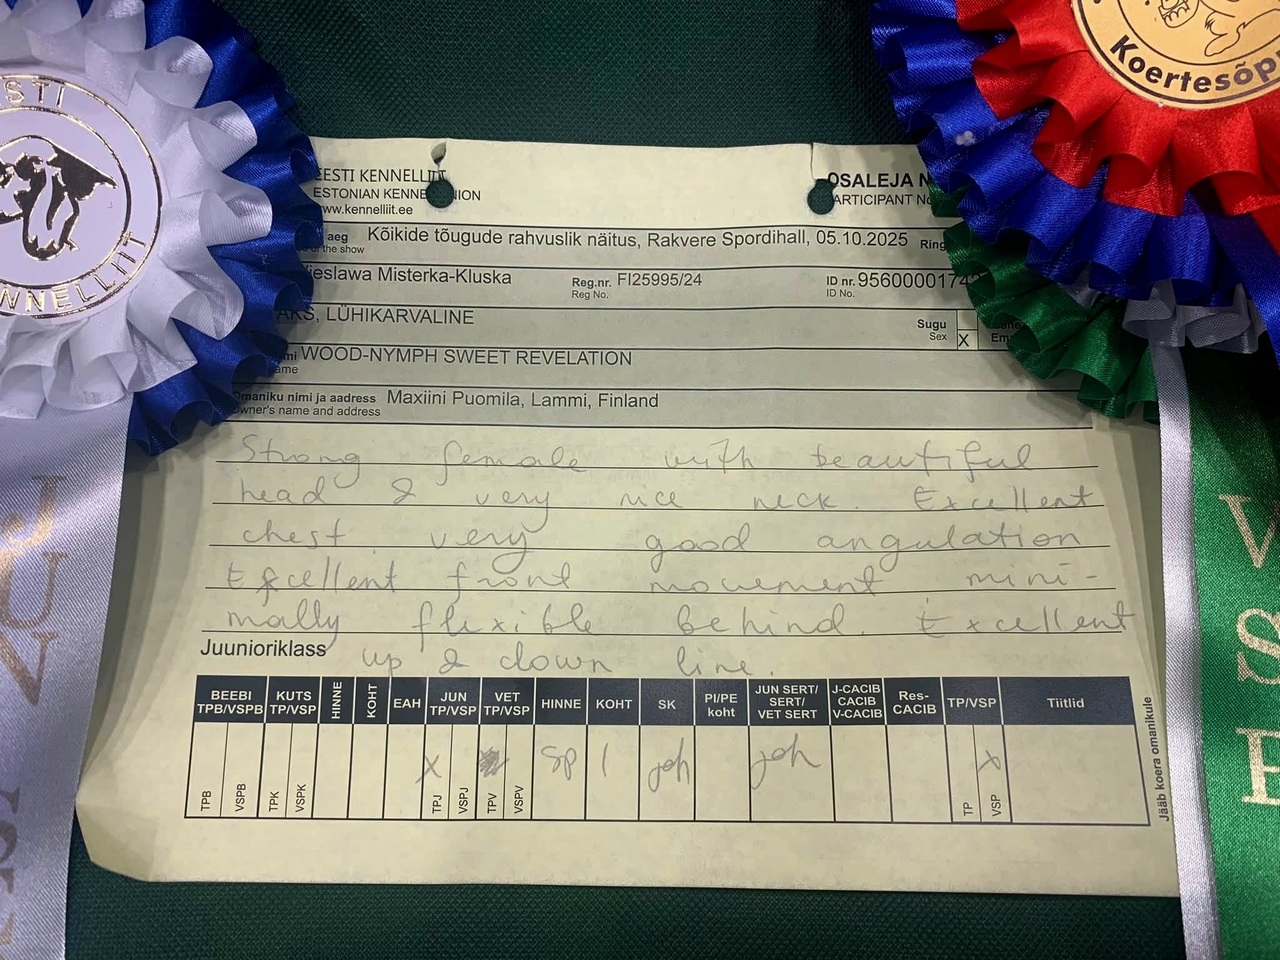 ESTI
NNELLIIT
Koertesõp
EESTI KENNELLIIT
ESTONIAN KENNEL UNION
www.kennelliit.ee
OSALEJA N
PARTICIPANT No
aeg Kõikide tõugude rahvuslik näitus, Rakvere Spordihall, 05.10.2025 Ring
of the show
ieslawa Misterka-Kluska Reg.nr. FI25995/24 ID nr. 95600001742
Reg No. ID No.
AKS, LÜHIKARVALINE Sugu
Sex X Em
WOOD-NYMPH SWEET REVELATION
ame
Omaniku nimi ja aadress Maxiini Puomila, Lammi, Finland
Owner's name and address
Strong female with beautiful
head & very nice neck. Excellent
chest very good angulation
Excellent front movement mini-
mally flexible behind. Excellent
Juunioriklass up & down line.
BEEBI TPB/VSPB KUTS TP/VSP HINNE KOHT EAH JUN TP/VSP VET TP/VSP HINNE KOHT SK PI/PE koht JUN SERT/ SERT/ VET SERT J-CACIB CACIB V-CACIB Res-CACIB TP/VSP Tiitlid
X sp 1 jah jah X
TPB VSPB TPK VSPK TPJ VSPJ TPV VSPV TP VSP
Jääb koera omanikule
JUN
VS
VSE